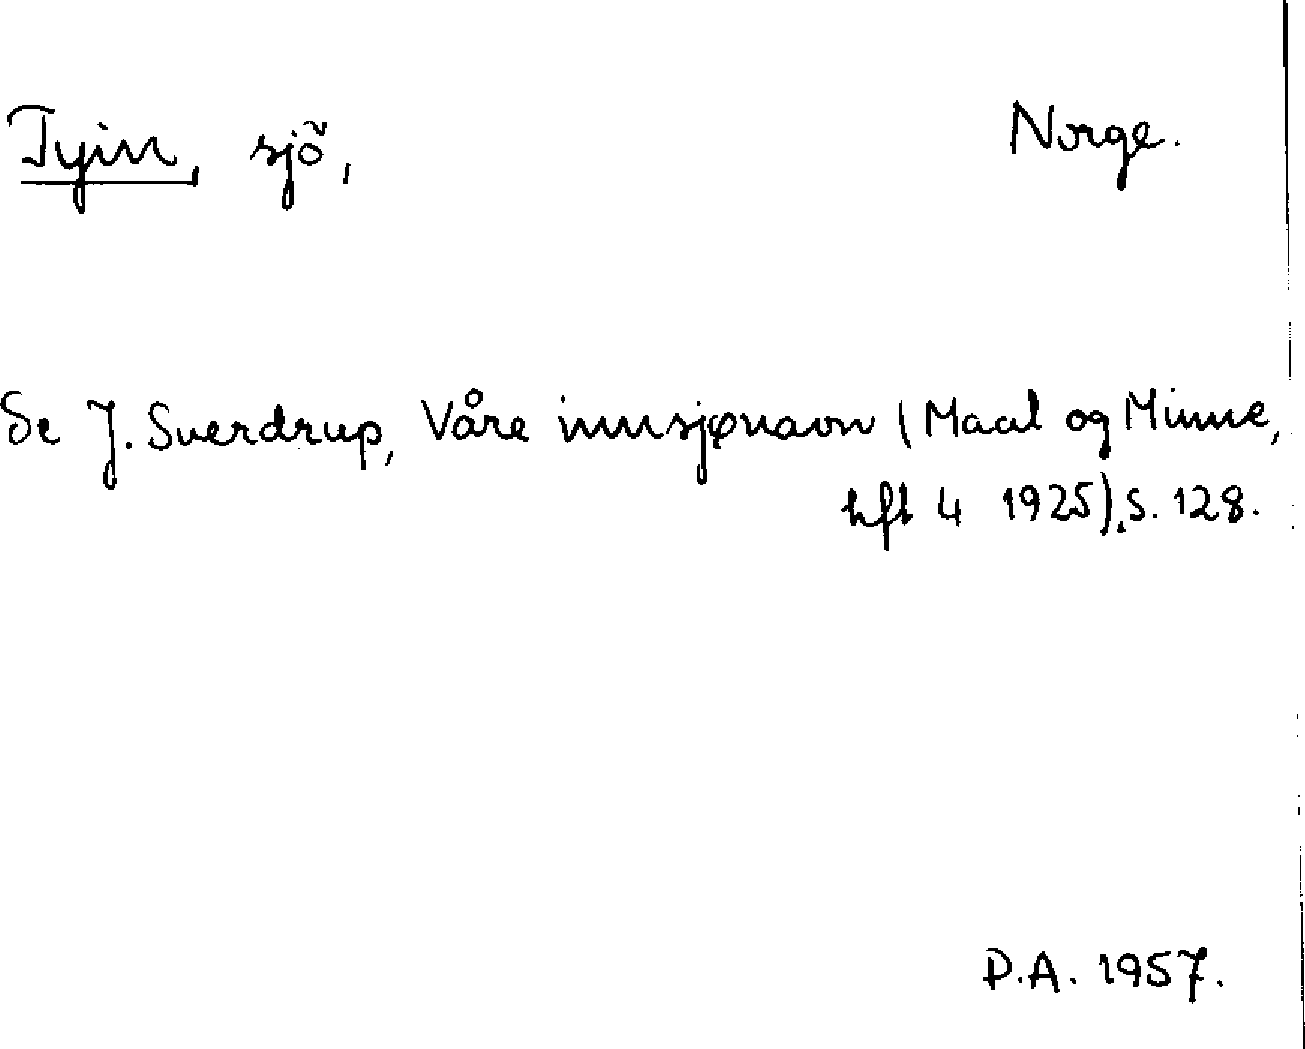 Tyin, sjö, Norge.
Se J. Sverdrup, Våre innsjønavn (Maal og Minne,
hft 4 1925), s. 128.
D.A. 1957.